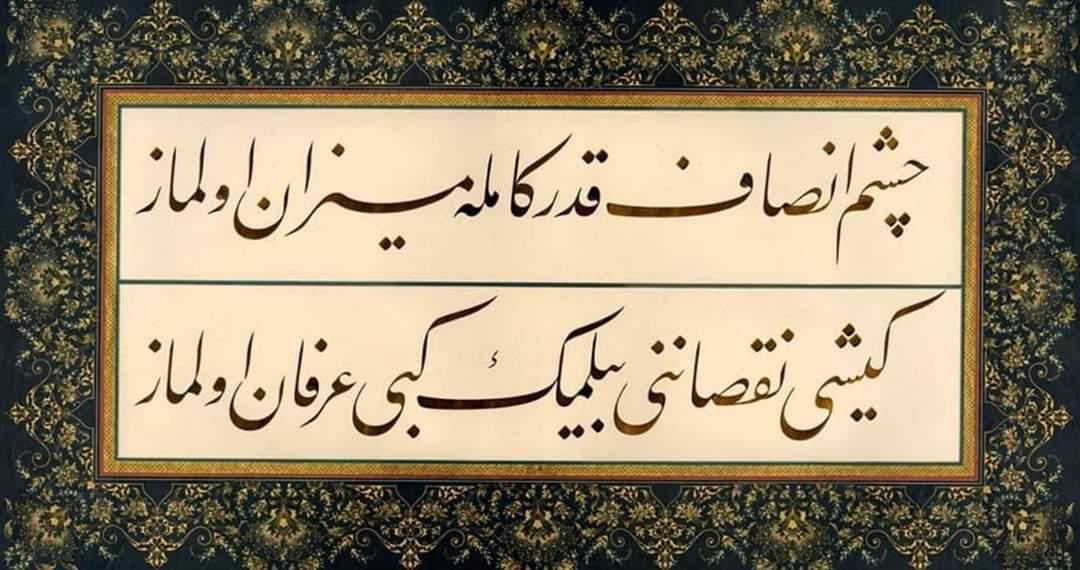 چشم انصاف قدر كامله ميزان اولماز
كيشى نقصاننى بيلمك كبى عرفان اولماز